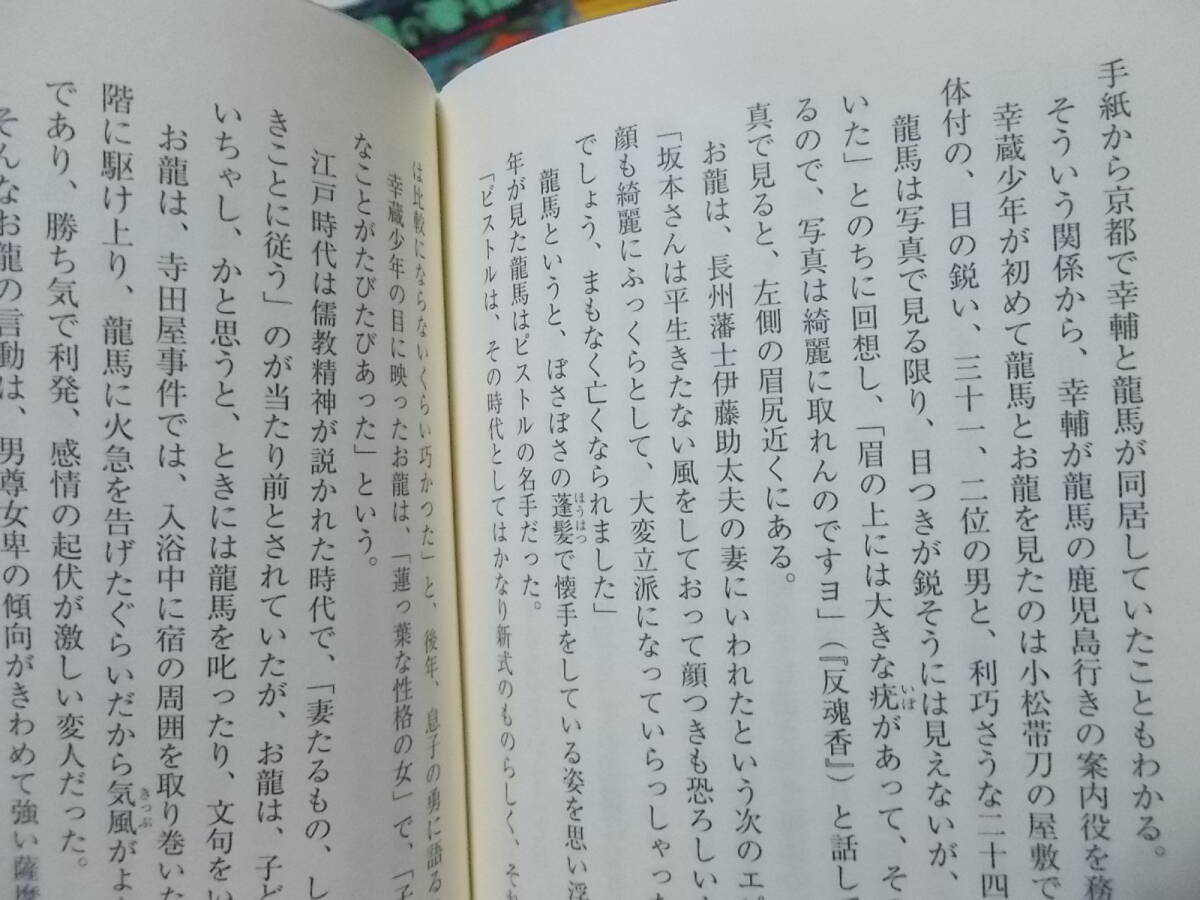 手紙から京都で幸輔と龍馬が同居していたこともわかる。
そういう関係から、幸輔が龍馬の鹿児島行きの案内役を務
幸蔵少年が初めて龍馬とお龍を見たのは小松帯刀の屋敷で
体付の、目の鋭い、三十一、二位の男と、利巧さうな二十四
龍馬は写真で見る限り、目つきが鋭そうには見えないが、
いた」とのちに回想し、「眉の上には大きな疣があって、そ
いぼ
るので、写真は綺麗に取れんのですヨ」（『反魂香』）と話して
真で見ると、左側の眉尻近くにある。
お龍は、長州藩士伊藤助太夫の妻にいわれたという次のエピ
「坂本さんは平生きたない風をしておって顔つきも恐ろしい
顔も綺麗にふっくらとして、大変立派になっていらっしゃった
でしょう、まもなく亡くなられました」
龍馬というと、ぼさぼさの蓬髪で懐手をしている姿を思い浮
ほうはつ
年が見た龍馬はピストルの名手だった。
「ピストルは、その時代としてはかなり新式のものらしく、それ
は比較にならないくらい巧かつた」と、後年、息子の勇に語る
幸蔵少年の目に映ったお龍は、「蓮っ葉な性格の女」で、「子
なことがたびたびあった」という。
江戸時代は儒教精神が説かれた時代で、「妻たるもの、し
きことに従う」のが当たり前とされていたが、お龍は、子ど
いちゃし、かと思うと、ときには龍馬を叱ったり、文句をい
お龍は、寺田屋事件では、入浴中に宿の周囲を取り巻いた
階に駆け上り、龍馬に火急を告げたぐらいだから気風がよ
きっぷ
であり、勝ち気で利発、感情の起伏が激しい変人だった。
そんなお龍の言動は、男尊女卑の傾向がきわめて強い薩摩